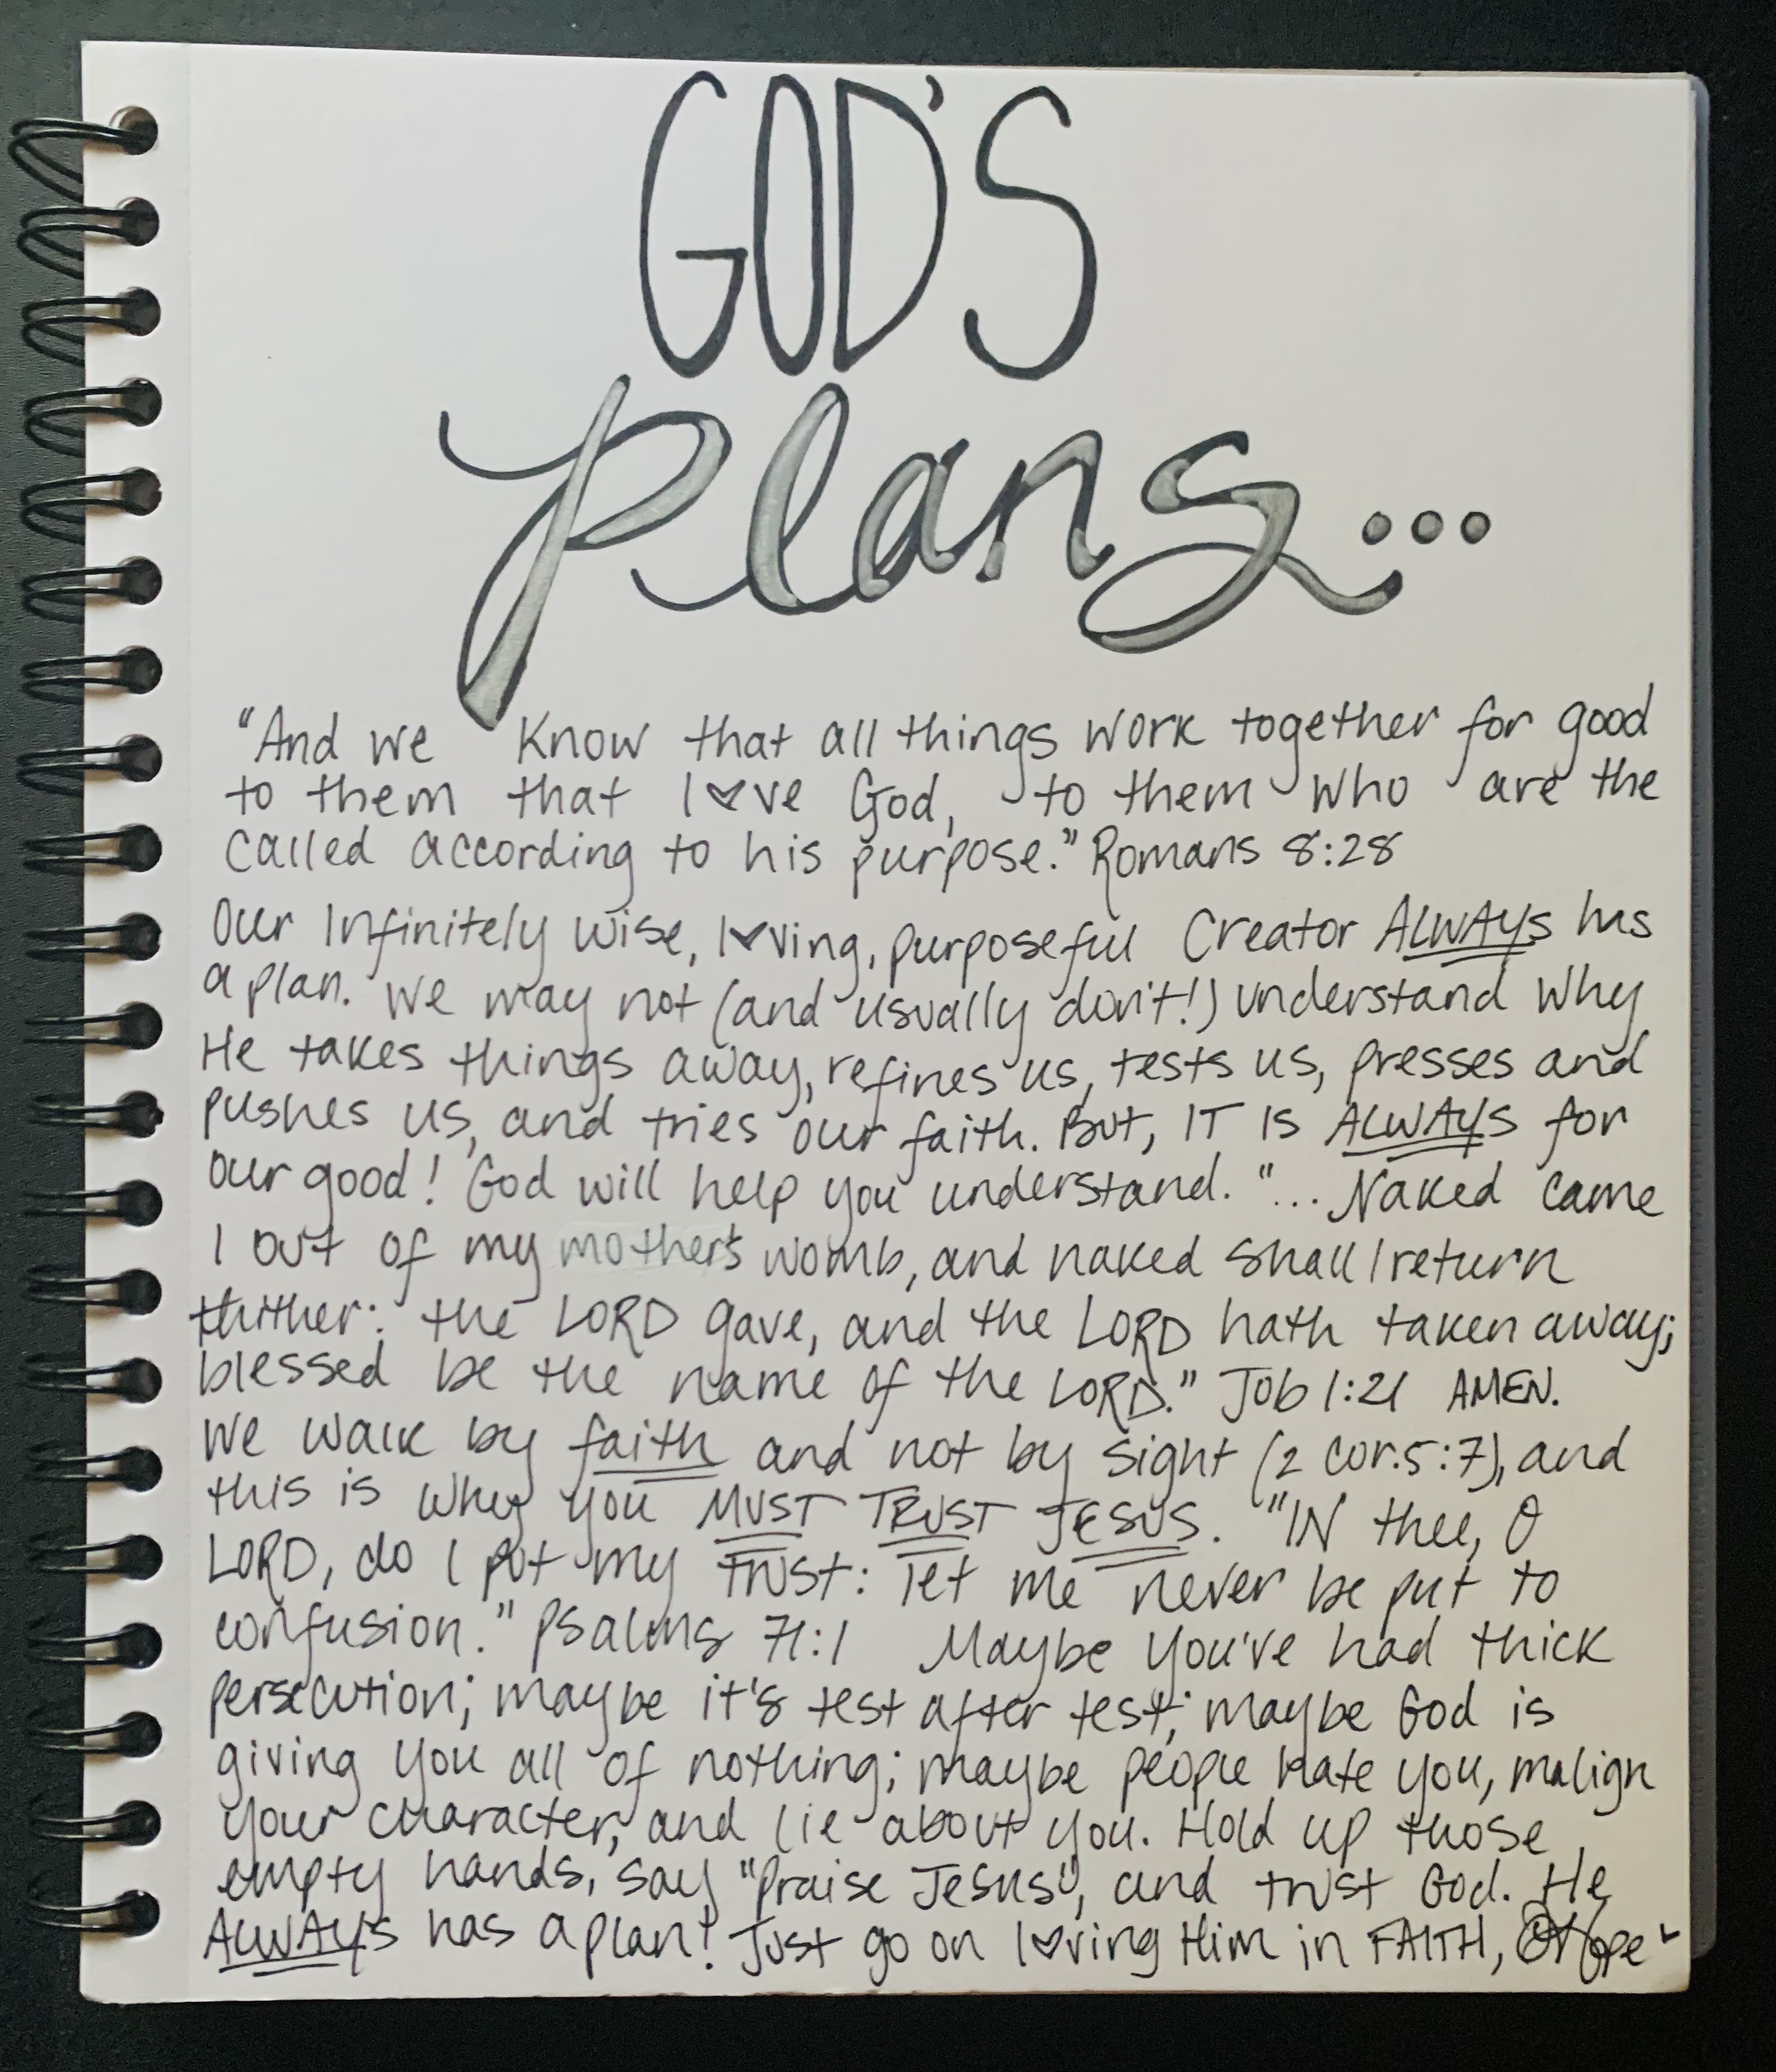 GOD'S
plans...
"And we know that all things work together for good
to them that love God, to them who are the
called according to his purpose." Romans 8:28
Our Infinitely wise, loving, purposeful Creator ALWAYS has
a plan. We may not (and usually don't!) understand why
He takes things away, refines us, tests us, presses and
pushes us, and tries our faith. But, IT IS ALWAYS for
our good! God will help you understand. "... Naked came
I out of my mother's womb, and naked shall I return
thither: the LORD gave, and the LORD hath taken away;
blessed be the name of the LORD." Job 1:21 AMEN.
We walk by faith and not by sight (2 Cor.5:7), and
this is why you MUST TRUST JESUS. "IN thee, O
LORD, do I put my trust: let me never be put to
confusion." Psalms 71:1 Maybe you've had thick
persecution; maybe it's test after test; maybe God is
giving you all of nothing; maybe people hate you, malign
your character, and lie about you. Hold up those
empty hands, say "Praise Jesus", and trust God. He
ALWAYS has a plan! Just go on loving Him in FAITH, Hope